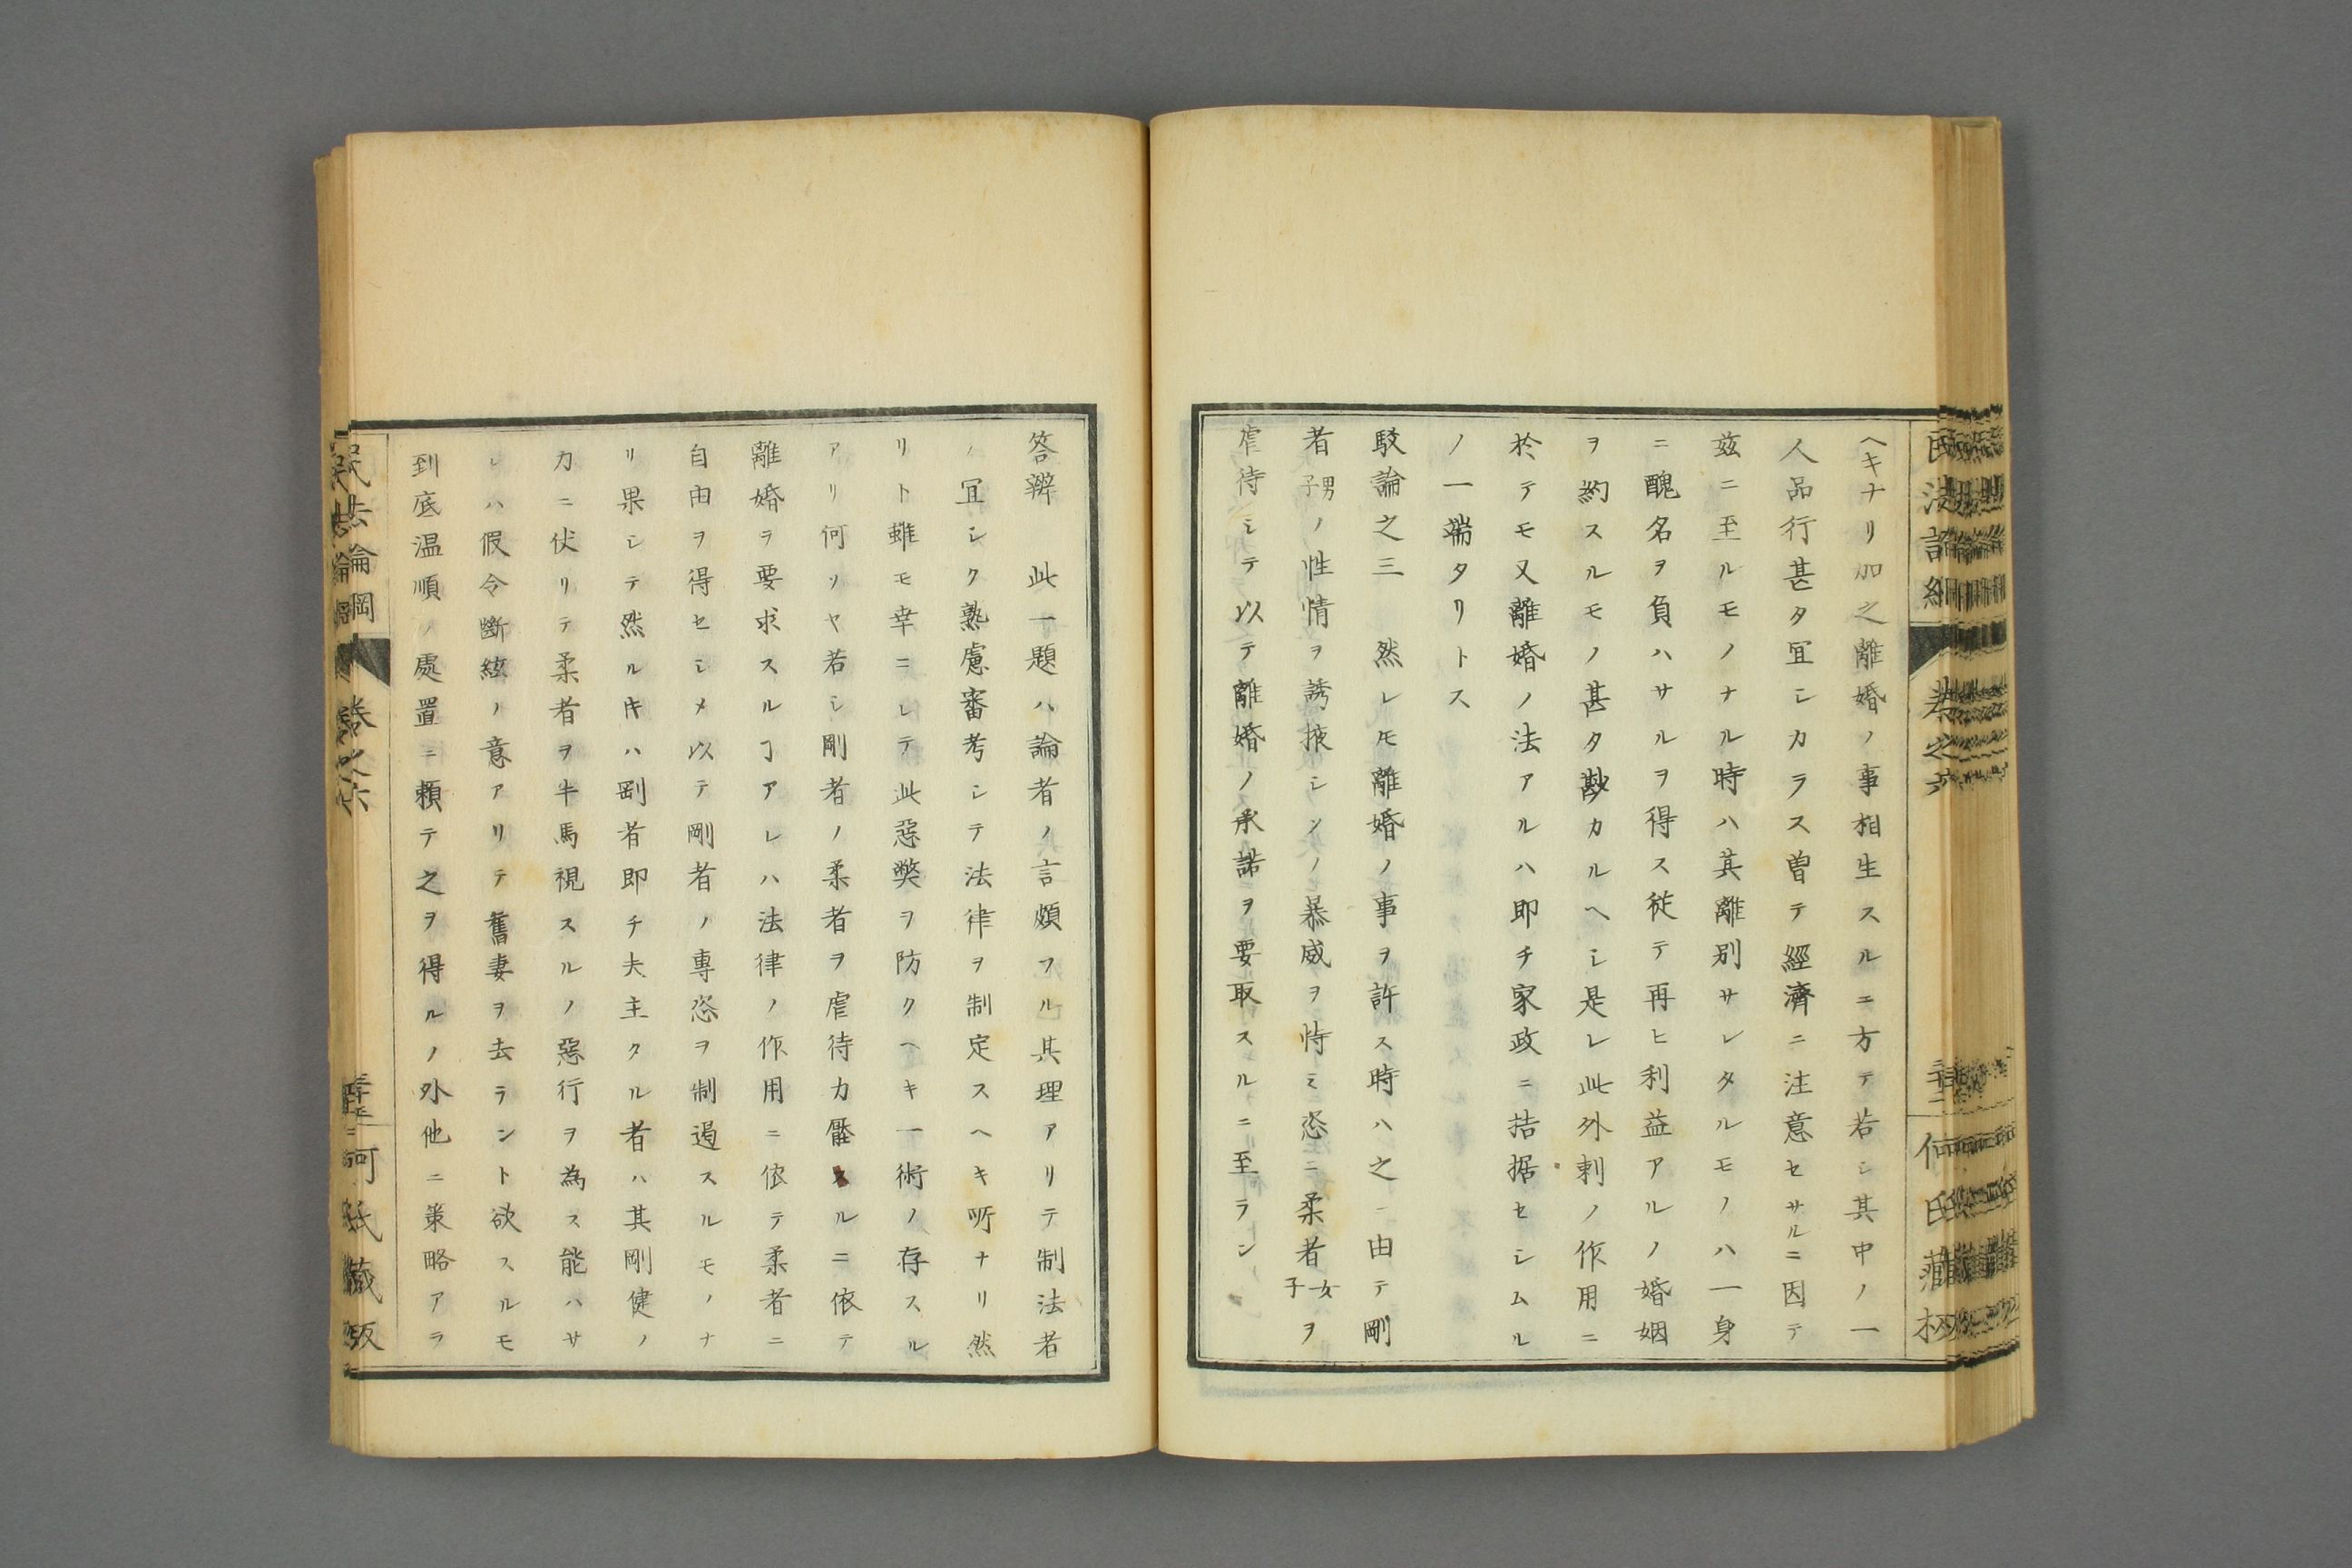 ヘキナリ加之離婚ノ事相生スルニ方テ若シ其中ノ一
人品行甚タ冝シカラス曽テ經濟ニ注意セサルニ因テ
玆ニ至ルモノナル時ハ其離別サレタルモノハ一身
ニ醜名ヲ負ハサルヲ得ス従テ再ヒ利益アルノ婚姻
ヲ約スルモノ甚タ尠カルヘシ是レ此外剌ノ作用ニ
於テモ又離婚ノ法アルハ即チ家政ニ拮据セシムル
ノ一端タリトス
駁論之三　然レ𪜈離婚ノ事ヲ許ス時ハ之ニ由テ剛
者男子ノ性情ヲ誘掖シソノ暴威ヲ恃ミ恣ニ柔者女子ヲ
虐待シテ以テ離婚ノ承諾ヲ要取スルニ至ラン
答辯　此一題ハ論者ノ言頗フル其理アリテ制法者
ノ冝シク熟慮審考シテ法律ヲ制定スヘキ所ナリ然
リト雖モ幸ニシテ此惡獘ヲ防クヘキ一術ノ存スル
アリ何ソヤ若シ剛者ノ柔者ヲ虐待カルニ依テ
離婚ヲ要求スルヿアレハ法律ノ作用ニ依テ柔者ニ
自由ヲ得セシメ以テ剛者ノ專恣ヲ制遏スルモノナ
リ果シテ然ルキハ剛者即チ夫主タル者ハ其剛健ノ
力ニ伏リテ柔者ヲ牛馬視スルノ惡行ヲ為ス能ハサ
レハ假令斷絃ノ意アリテ舊妻ヲ去ラント欲スルモ
到底温順ノ處置ニ頼テ之ヲ得ルノ外他ニ策略アラ
民法論綱
卷之六
何氏藏板